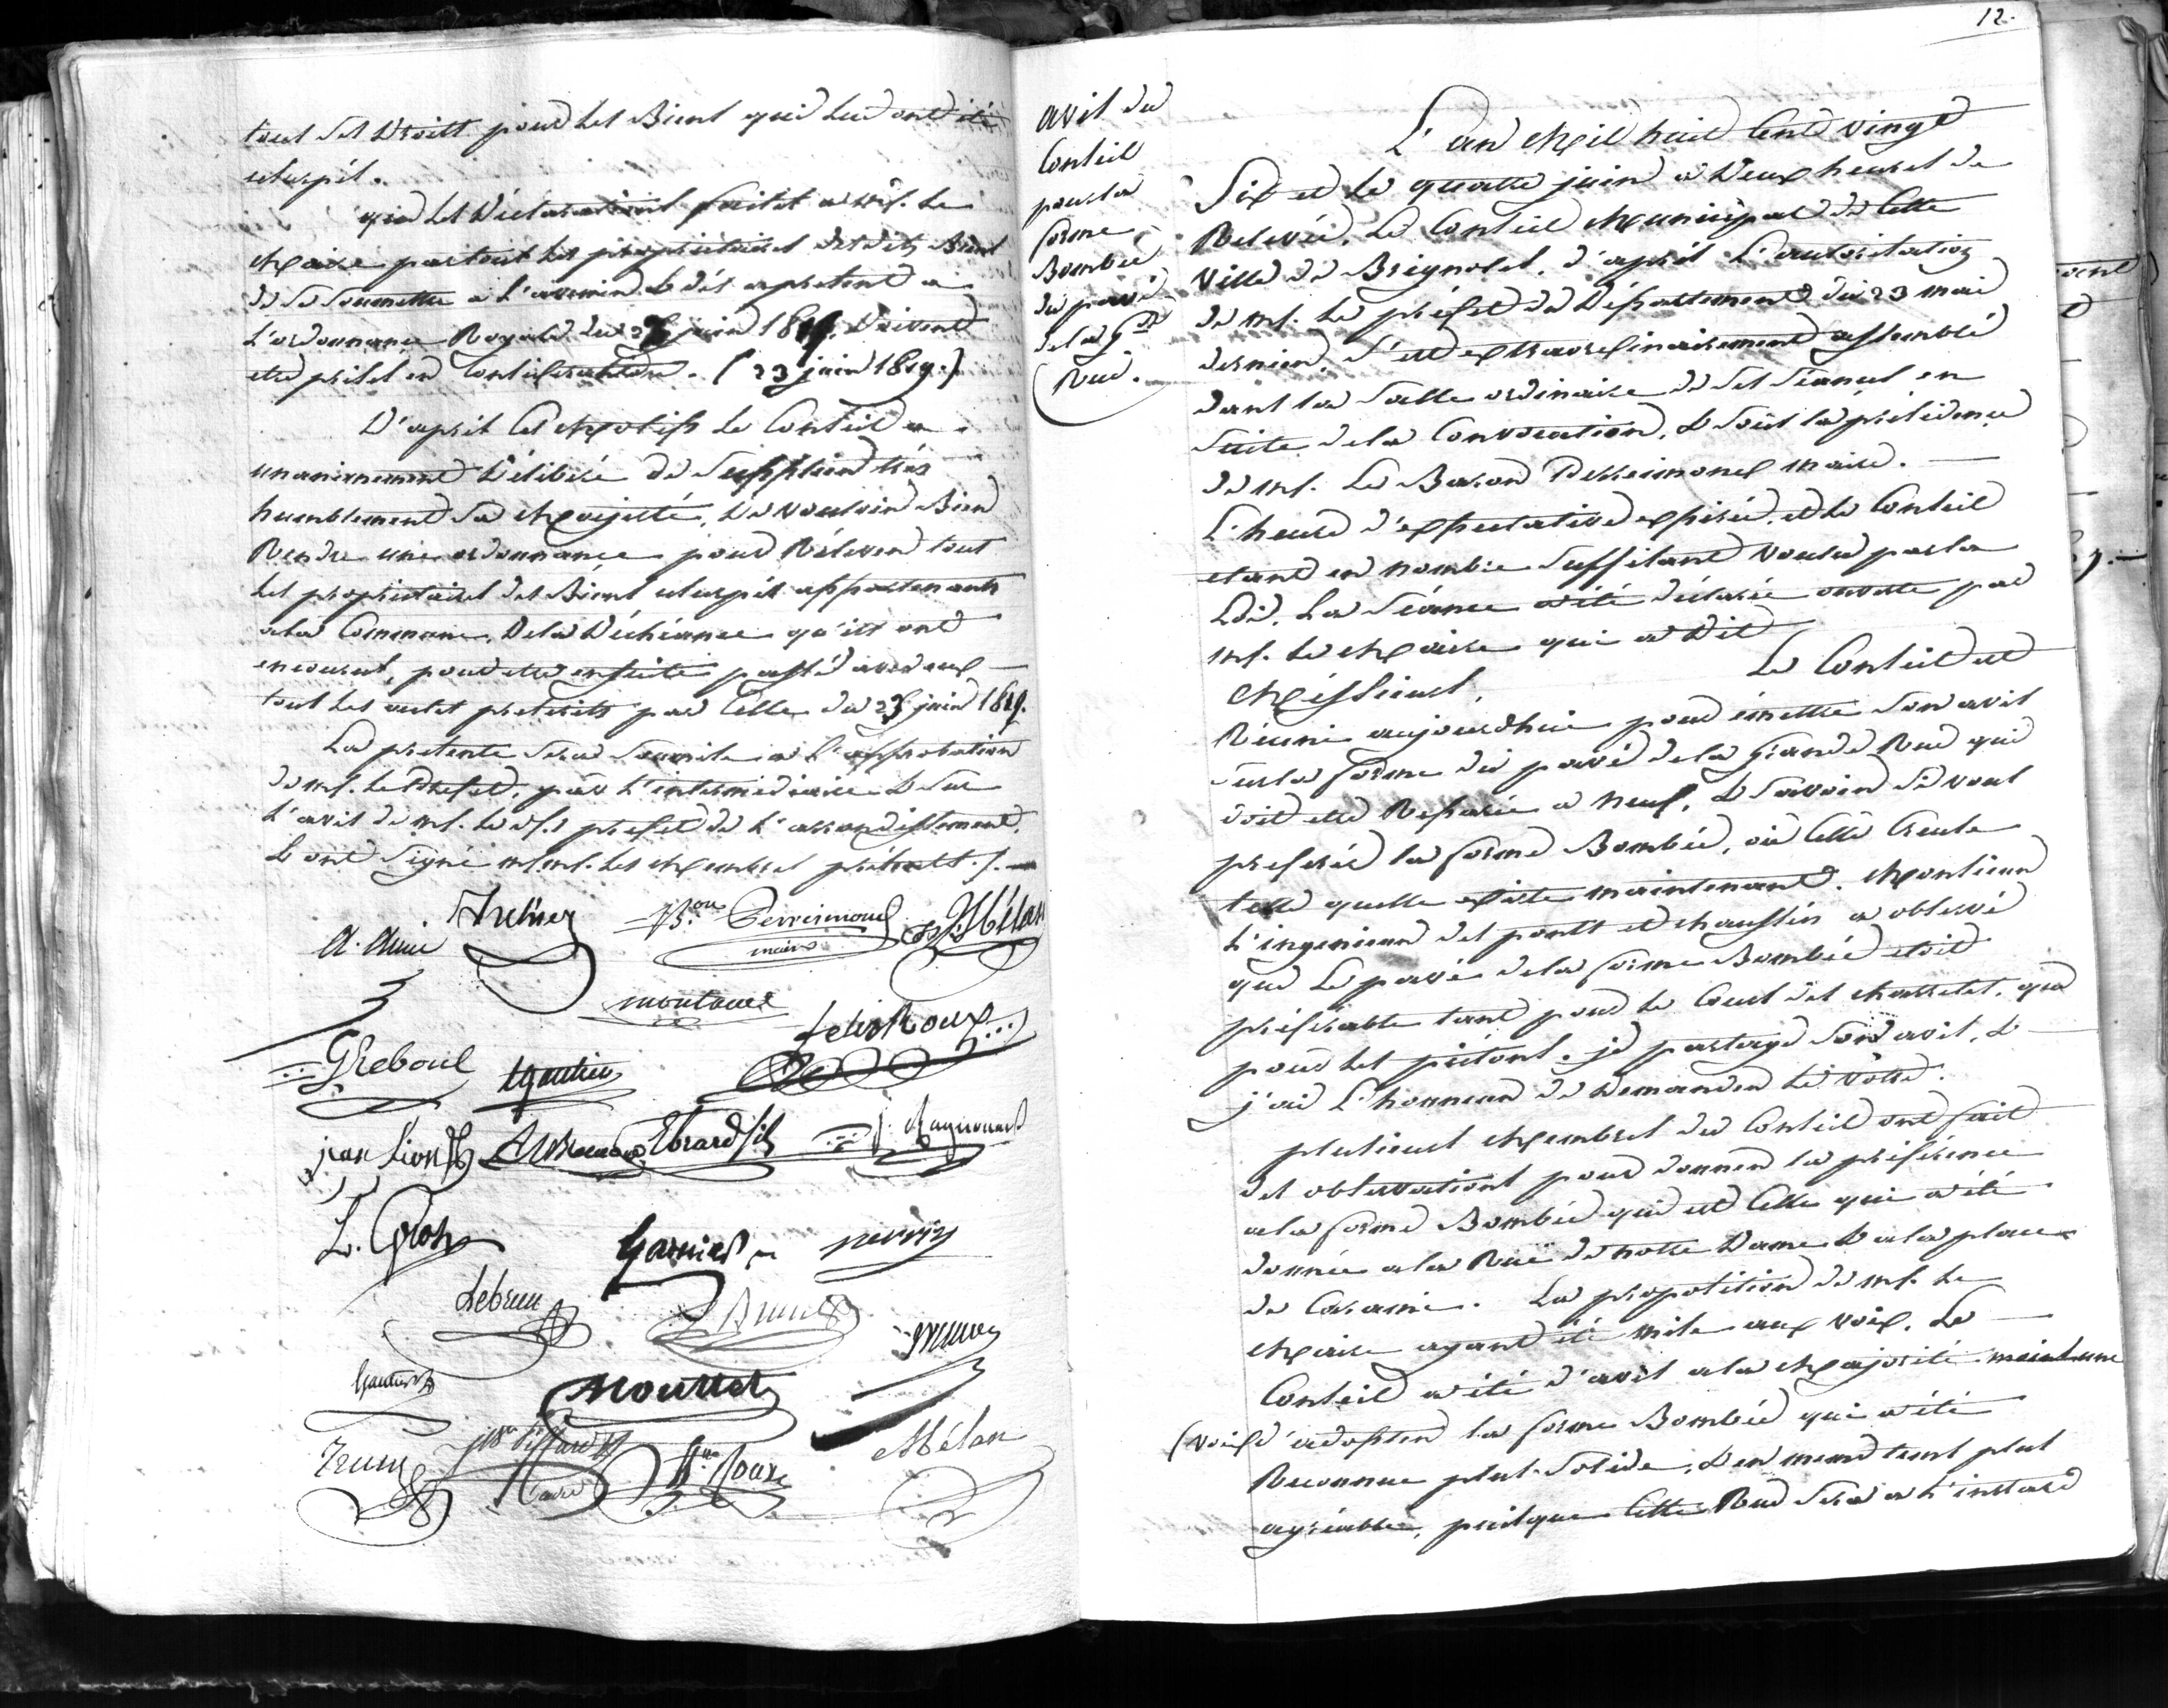 tous ses droits pour les Biens qui lui ont été
usurpés.
que les Déclarations faites a Mr. Le
Maire par tous les propriétaires desdits Biens
de se soumettre a l'avenir & dès apresent a
L'ordonnance Royale du 23 juin 1819. Doivent
etre prises en Considération. (23 juin 1819.)
D'après Ces Motifs Le Conseil a
unanimement Délibéré de Supplier très
humblement Sa Majesté, De vouloir Bien
Rendre une ordonnance pour Rélever tous
les propriétaires des Biens usurpés appartenants
a la Commune, De la Déchéance qu'ils ont
encourue, pour etre ensuite passé avec eux
tous les actes prescrits par Celle du 23 juin 1819.
La presente Sera Soumise a l'approbation
de Mr. Le Prefet, par L'intermédiaire & Sur
L'avis de Mr. Le Ss. prefet de L'arrondissement.
& ont Signé MM. les Membres présents ./.
Bon. Perreimond
maire
Mélan
montaud
felix Roux
G Reboul
Gautier
jean Lion fs
Ebrard fils
J. Raynouard
L. Gros
Garnier
Lebrun
Brun
Mouttet
Roux
Mélan
12.
avis du
Conseil
pour la
forme
Bombée
du pavé
de la Gde
Rue.
L'an Mil huit Cent vingt
Six et Le quatre juin a Deux heures de
Relevée, Le Conseil Municipal de Cette
Ville de Brignoles, d'après L'autorisation
de Mr. Le préfet du Département du 23 mai
dernier, S'est extraordinairement assemblé
dans la Salle ordinaire de Ses Séances en
Suite de la Convocation, & Sous la présidence
de Mr. Le Baron Perreimond maire.
L'heure d'expectative expirée, et le Conseil
etant en nombre Suffisant voulu par la
Loi, La Séance a été déclarée ouverte par
Mr. Le Maire qui a Dit
Messieurs, Le Conseil est
Réuni aujourdhui pour émettre Son avis
Sur la forme du pavé de la Grande Rue qui
doit etre Reparée a neuf, & Savoir Si vous
preferés la forme Bombée, où Celle Creuse
telle quelle existe maintenant. Monsieur
L'ingenieur des ponts et chaussées a observé
que Le pavé de la forme Bombée etoit
préférable tant pour le Cours des charretes, que
pour les piétons. je partage Son avis, &
j'ai L'honneur de Demander le vôtre.
plusieurs Membres du Conseil ont fait
des observations pour donner la préférence
a la forme Bombée qui est Celle qui a été
donnée a la Rue de notre Dame & a la place
de Carami. La proposition de Mr. Le
Maire ayant été mise aux voix, Le
Conseil a été d'avis a la Majorité moins une
(voix) d'adopter la forme Bombée qui a été
Reconnue plus Solide, & en meme tems plus
agréable, puisque Cette Rue Sera a L'instard